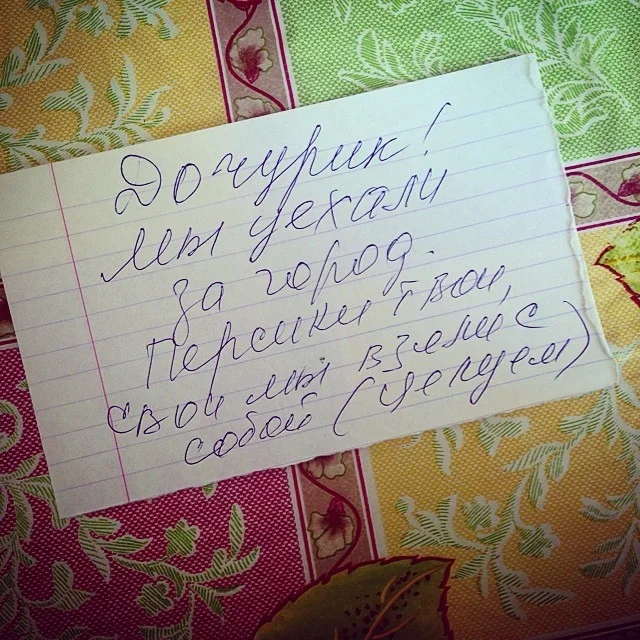 Дочурик!
мы уехали
за город.
Персики твои,
свои мы взяли с
собой (целуем)